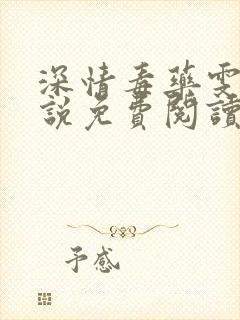 深情毒藥雯
說免費閱讀
予感